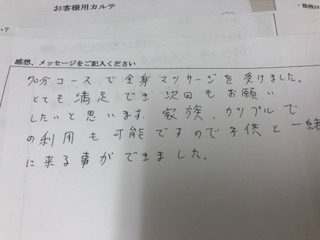 お客様用カルテ
感想、メッセージをご記入ください
70分コースで全身マッサージを受けました。
とても満足でき次回もお願い
したいと思います。家族、カップルで
の利用も可能ですので子供と一緒
に来る事ができました。